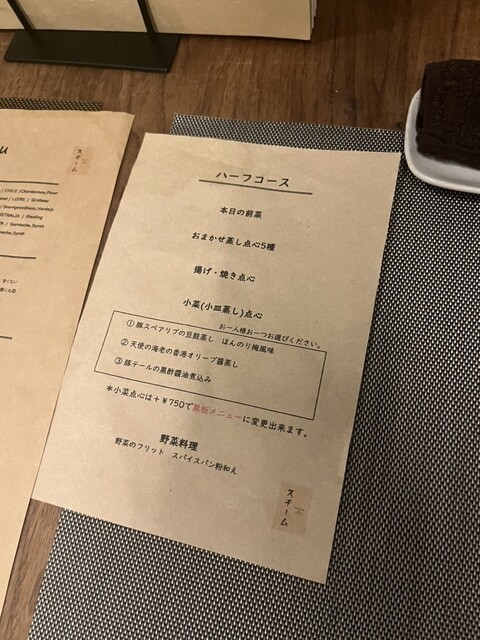 u
スチーム
/ CHILE /Chardonnay,Pinot
/ LOIRE /
/ SauvignonBlanc,Verdejo
AUSTRALIA / Riesling
/ Garnacha,Syrah
Garnacha,Syrah
ハーフコース
本日の前菜
おまかせ蒸し点心5種
揚げ・焼き点心
小菜(小皿蒸し)点心
お一人様お一つお選びください。
① 豚スペアリブの豆鼓蒸し ほんのり梅風味
② 天使の海老の香港オリーブ醤蒸し
③ 豚テールの黒酢醤油煮込み
*小菜点心は+¥750で黒板メニューに変更出来ます。
野菜料理
野菜のフリット スパイスパン粉和え
スチーム